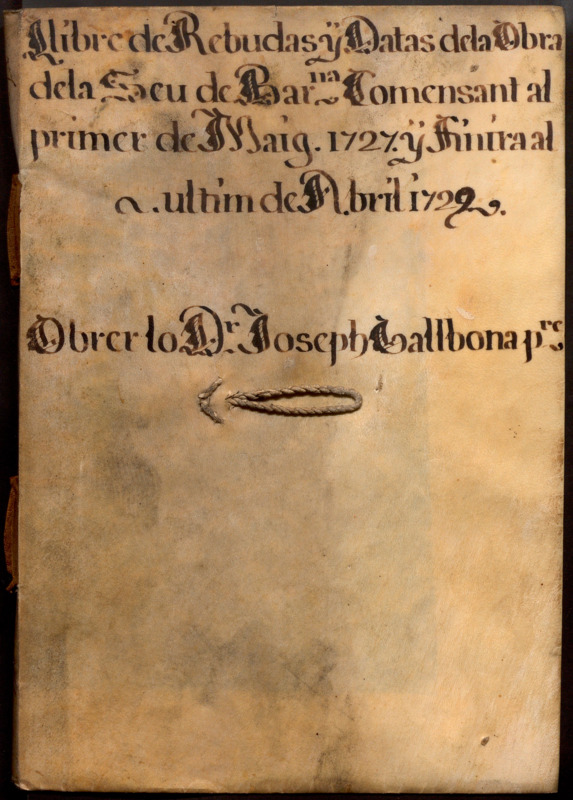 Llibre de Rebudas ÿ Datas de la Obra
de la Seu de Bar.na Comensant al
primer de Maig. 1727. ÿ Finira al
ultim de Abril 1729.
Obrer lo Dr. Joseph Gallbona pre